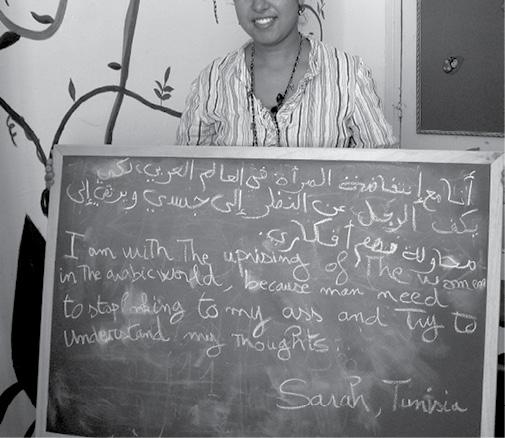 أنا مع إنتفاضة المرأة في العالم العربي، لكي
يكف الرجل عن النظر إلى جسدي ويرتقي إلى
محاولة فهم أفكاري.
I am with The uprising of The women
in The arabic world, because man need
to stop to my ass and Try to
understand my Thoughts..
Sarah, Tunisia